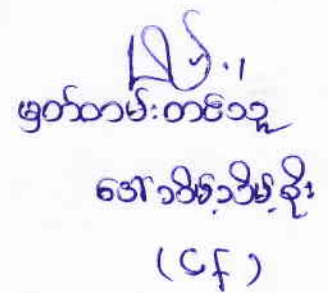 မှတ်တမ်းတင်သူ
ဒေါ်သိမ့်သိမ့်စိုး
(cf)